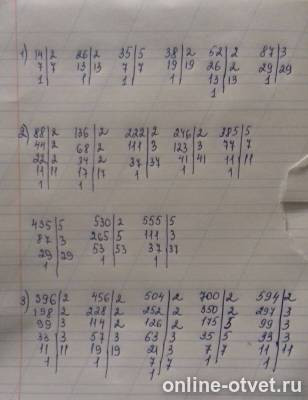 1) 14|2 26|2 35|5 38|2 52|2 87|3
7|7 13|13 7|7 19|19 26|2 29|29
1| 1| 1| 1| 13|13 1|
1|
2) 88|2 136|2 222|2 246|2 385|5
44|2 68|2 111|3 123|3 77|7
22|2 34|2 37|37 41|41 11|11
11|11 17|17 1| 1| 1|
1| 1|
435|5 530|2 555|5
87|3 265|5 111|3
29|29 53|53 37|37
1| 1| 1|
3) 396|2 456|2 504|2 700|2 594|2
198|2 228|2 252|2 350|2 297|3
99|3 114|2 126|2 175|5 99|3
33|3 57|3 63|3 35|5 33|3
11|11 19|19 21|3 7|7 11|11
1| 1| 7|7 1| 1|
1|
online-otvet.ru